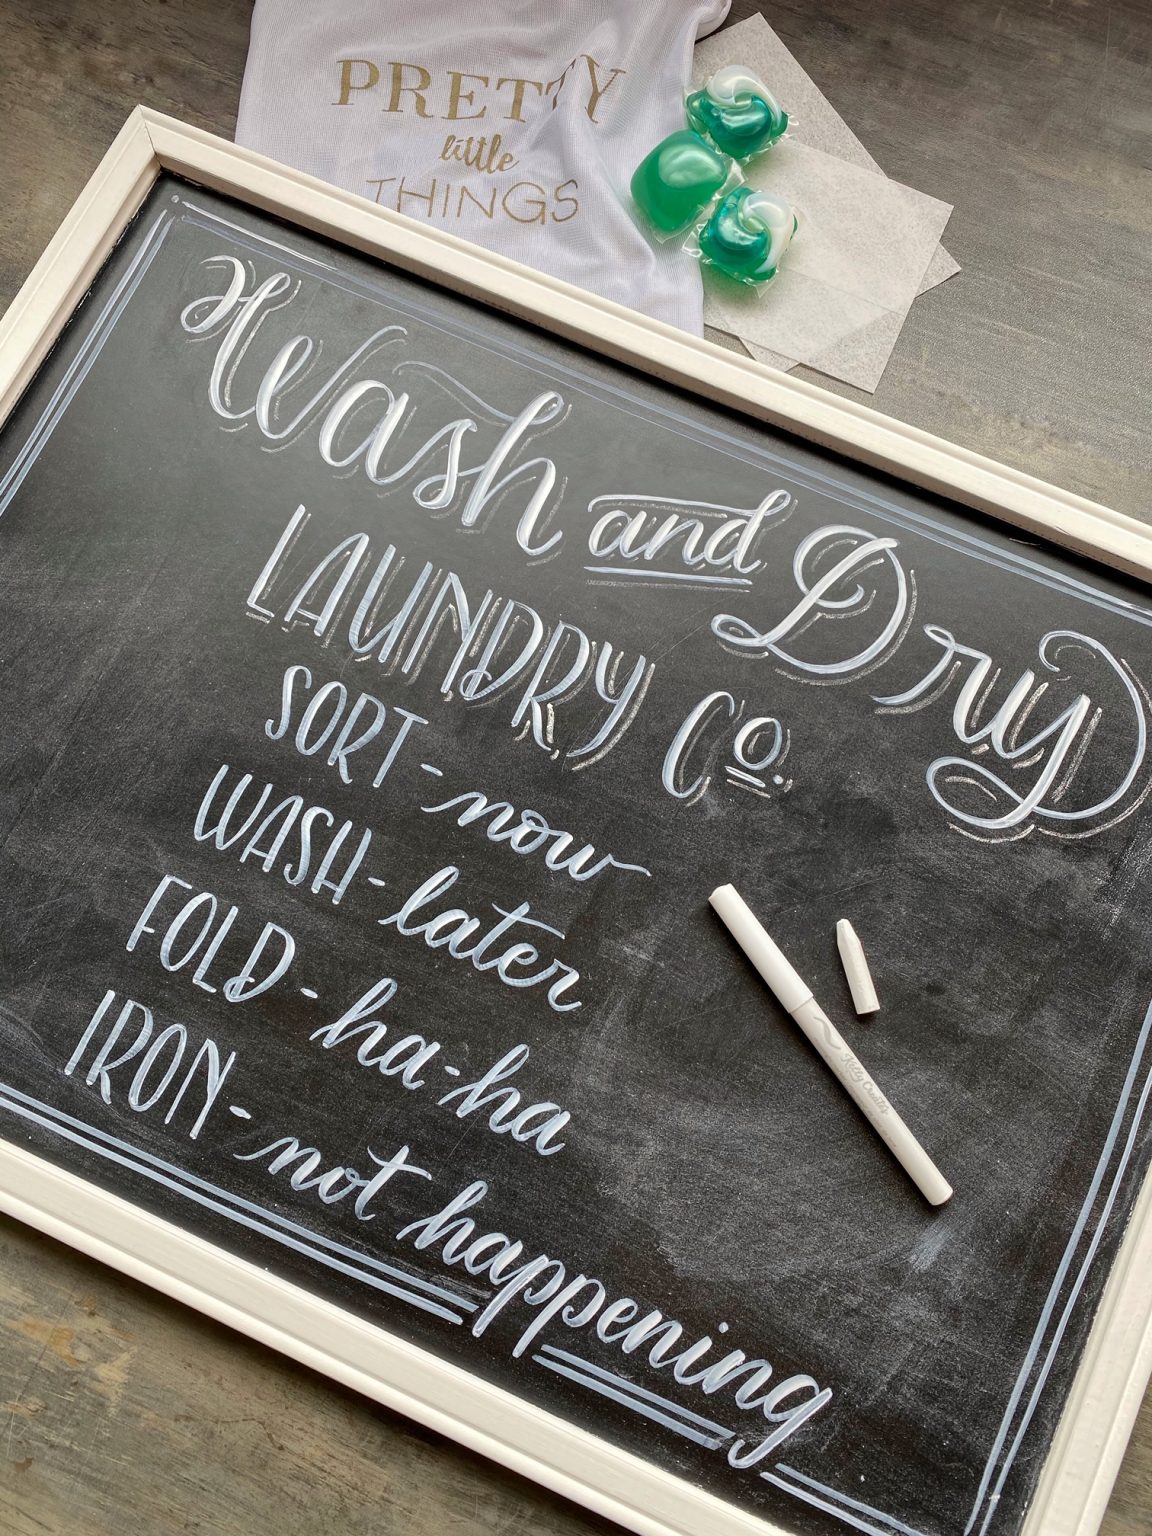 PRETTY
little
THINGS
Wash and Dry
LAUNDRY Co.
SORT - now
WASH - later
FOLD - ha-ha
IRON - not happening
Kelly Creates